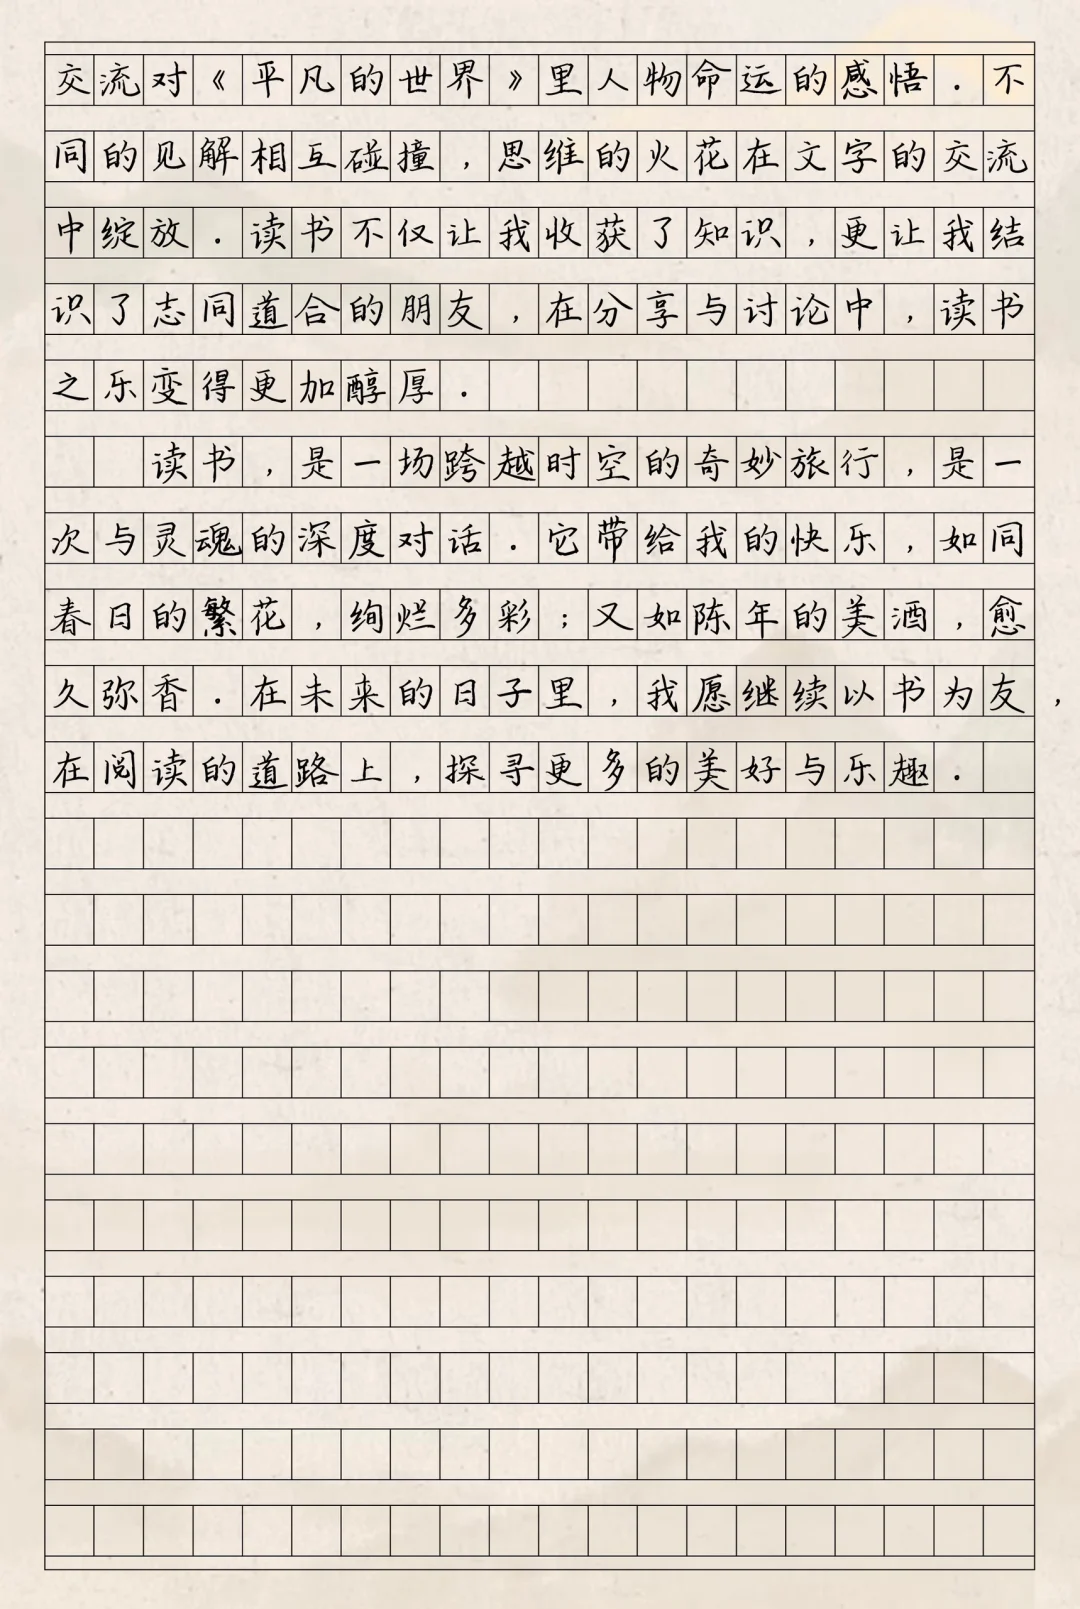 交流对《平凡的世界》里人物命运的感悟.不
同的见解相互碰撞,思维的火花在文字的交流
中绽放.读书不仅让我收获了知识,更让我结
识了志同道合的朋友,在分享与讨论中,读书
之乐变得更加醇厚.
读书,是一场跨越时空的奇妙旅行,是一
次与灵魂的深度对话.它带给我的快乐,如同
春日的繁花,绚烂多彩;又如陈年的美酒,愈
久弥香.在未来的日子里,我愿继续以书为友,
在阅读的道路上,探寻更多的美好与乐趣.